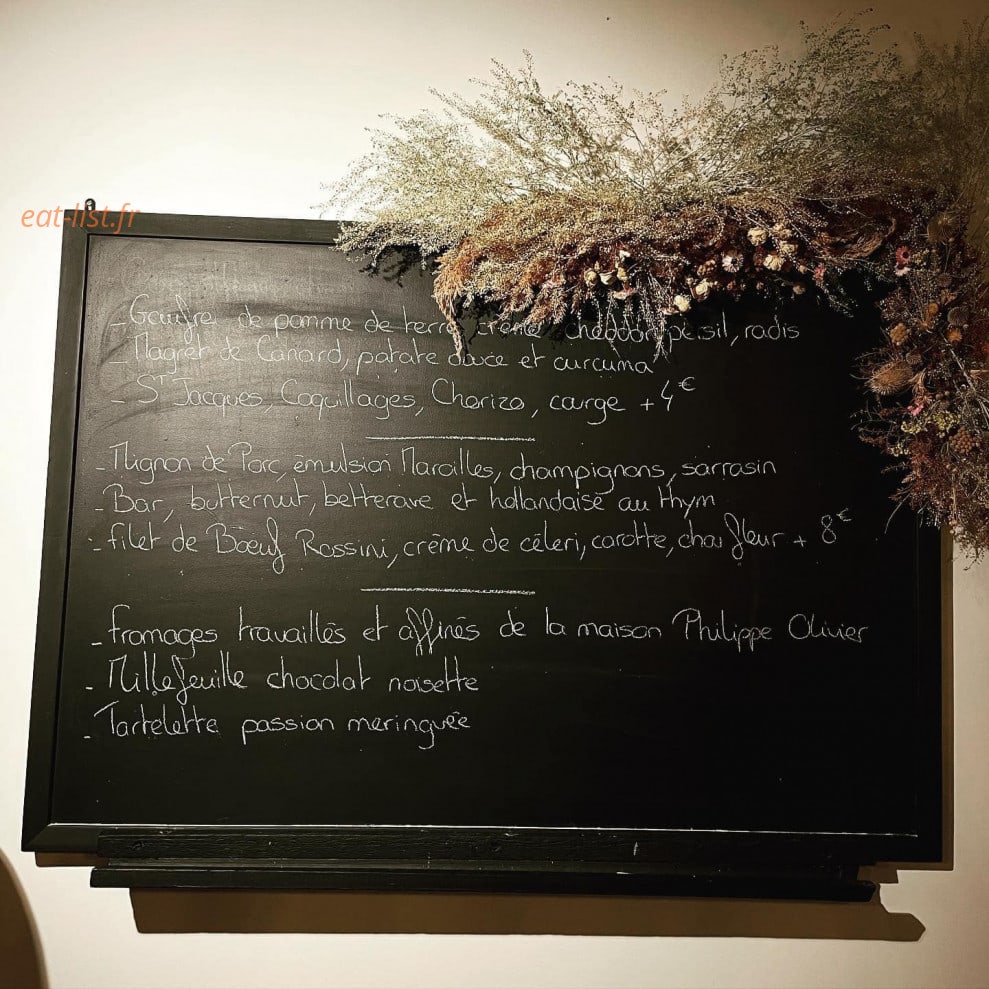 eat-list.fr
- Gaufre de pomme de terre, crème cheddar, persil, radis
- Magret de Canard, patate douce et curcuma
- St Jacques, Coquillages, Chorizo, courge + 4€
- Mignon de Porc, émulsion Maroilles, champignons, sarrasin
- Bar, butternut, betterave et hollandaise au thym
- filet de Bœuf Rossini, crème de céleri, carotte, chou fleur + 8€
- fromages travaillés et affinés de la maison Philippe Olivier
- Millefeuille chocolat noisette
- Tartelette passion meringuée